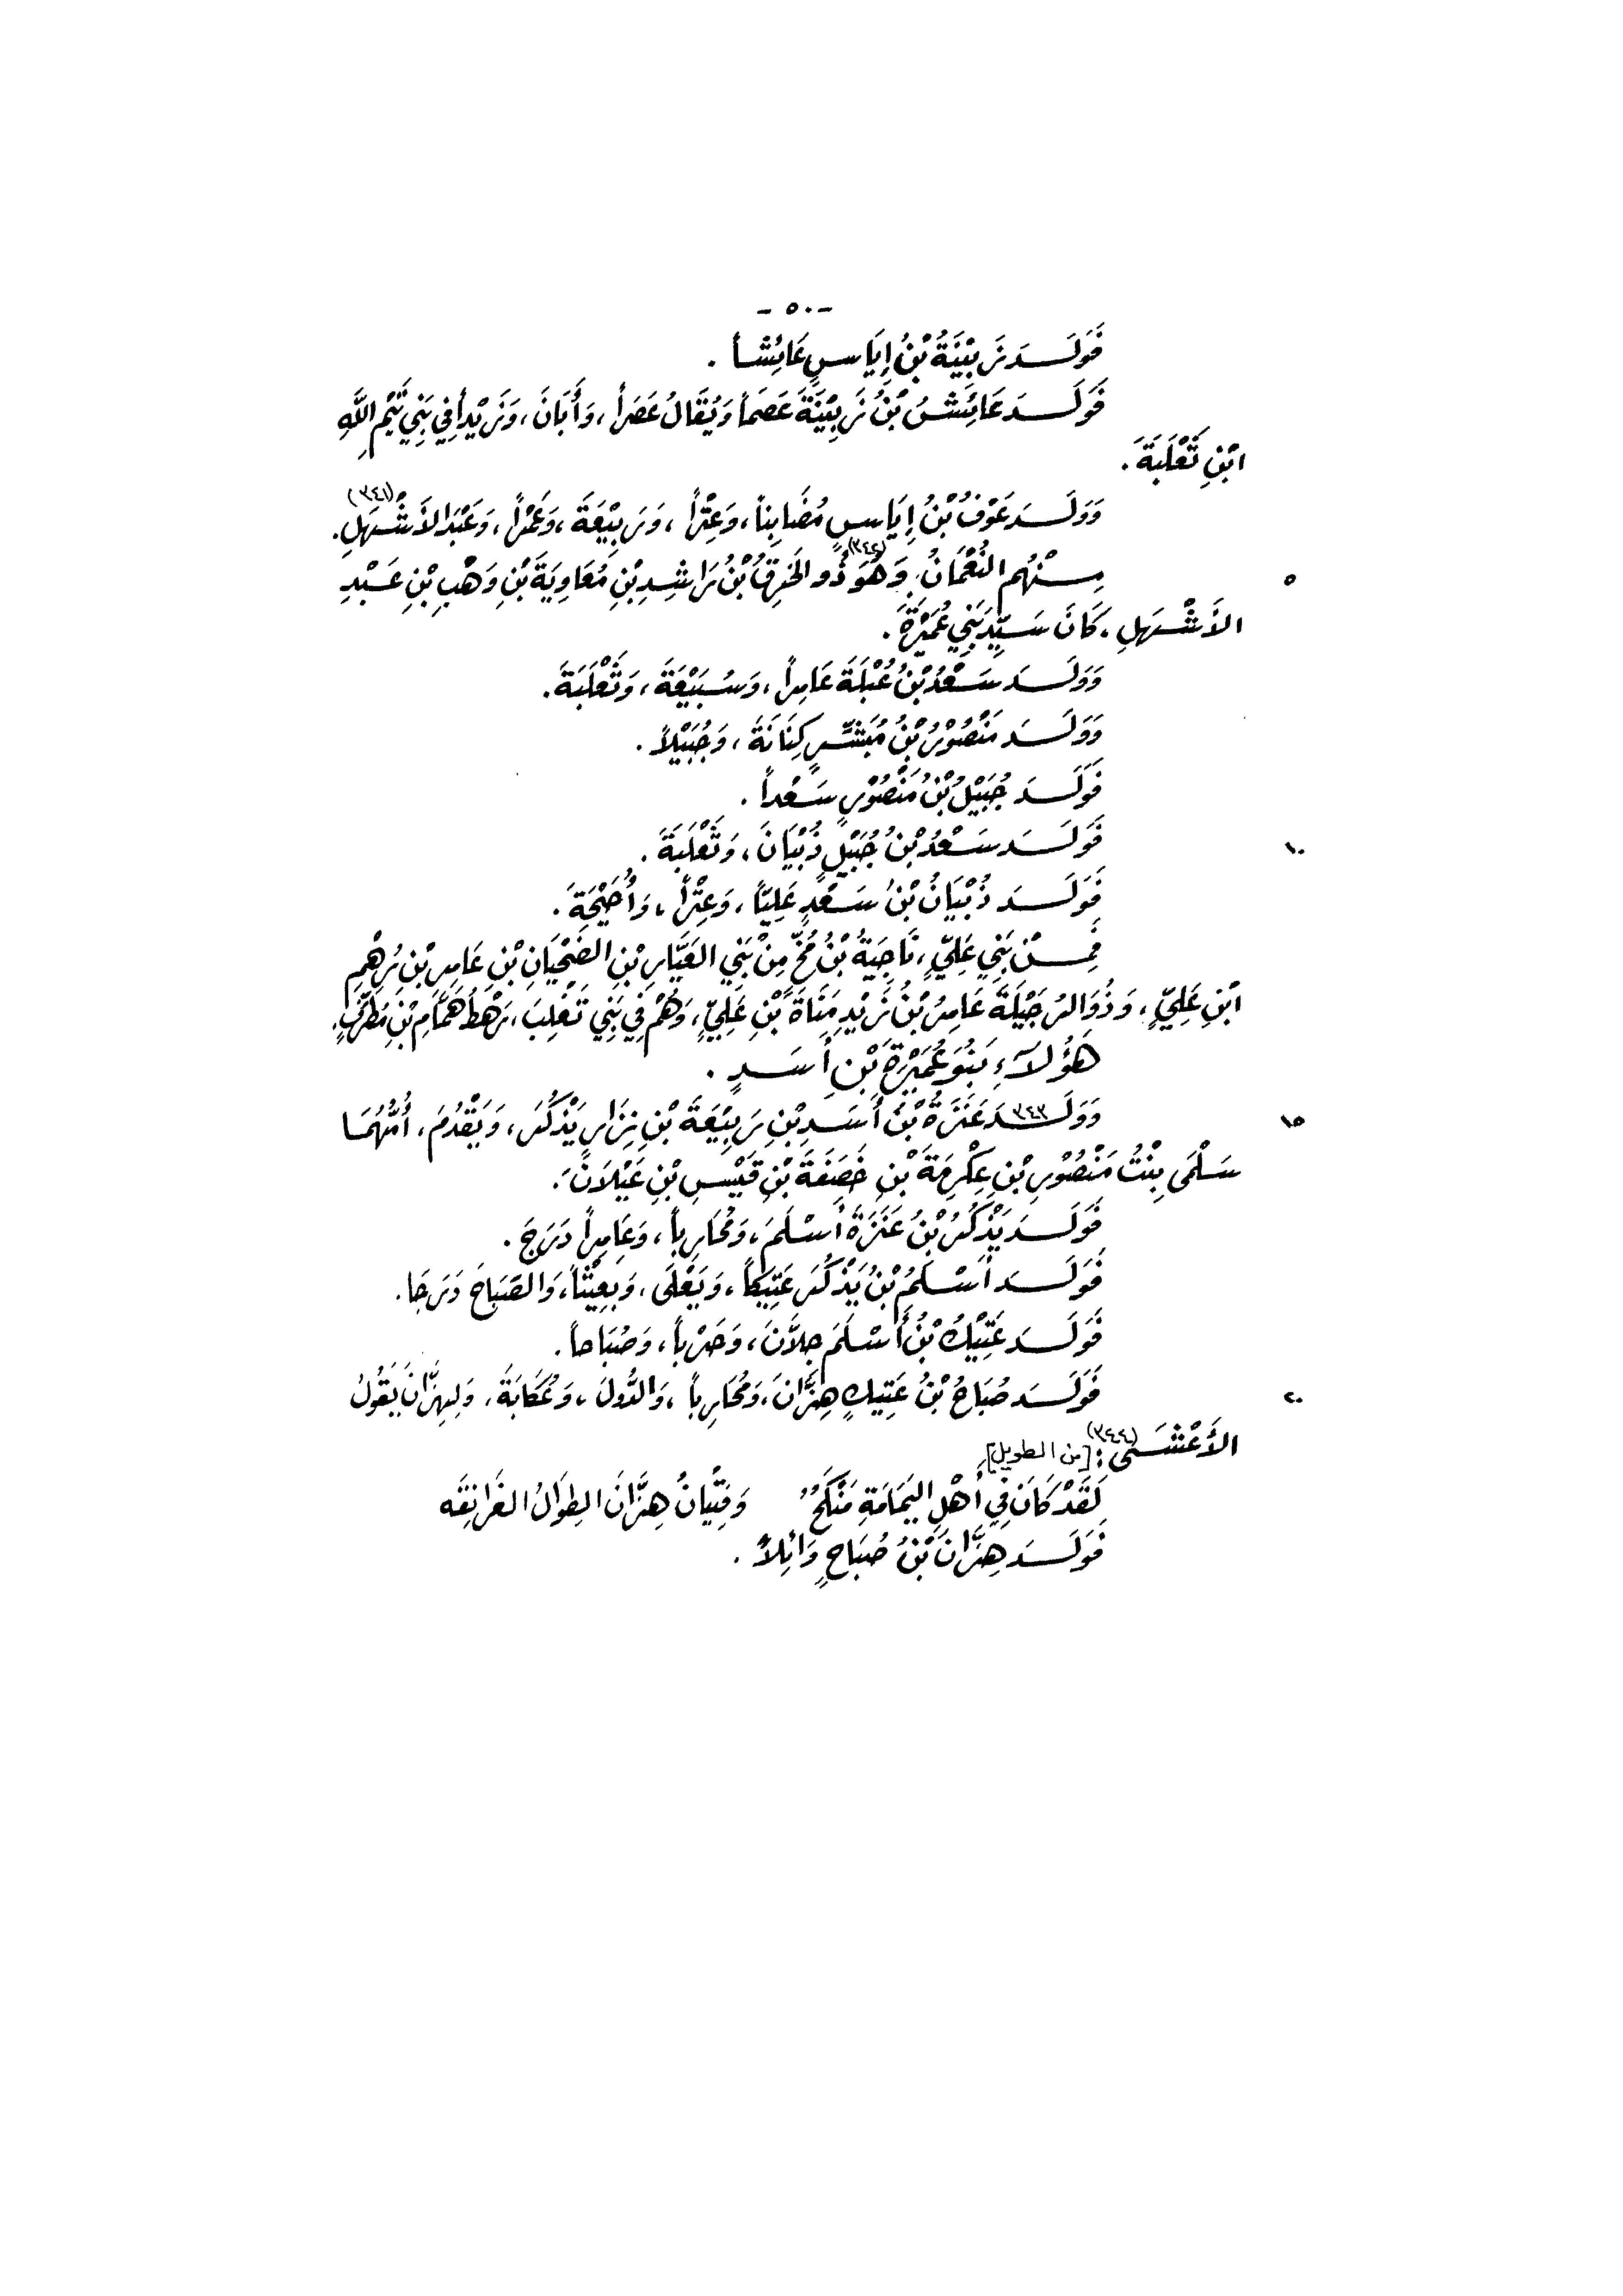 - ٥٠ -
فَوَلَدَ زَبِيْنَةُ بْنُ إِيَاسٍ عَائِشاً .
فَوَلَدَ عَائِشُ بْنُ زَبِيْنَةَ عَصَماً وَيُقَالُ عَصَراً ، وَأَبَانَ ، وَزَيْداً فِي بَنِي تَيْمِ اللَّهِ
ابْنِ ثَعْلَبَةَ .
وَوَلَدَ عَوْفُ بْنُ إِيَاسٍ مُضَابِناً ، وَعِتْراً ، وَرَبِيْعَةَ ، وَعَمْراً ، وَعَبْدَ الأَشْهَلِ. (٣٤١)
٥ مِنْهُم النُّعْمَانُ وَهُوَ ذُو الخِرَقِ (٣٤٢) بْنُ رَاشِدِ بْنِ مُعَاوِيَةَ بْنِ وَهْبِ بْنِ عَبْدِ
الأَشْهَلِ ، كَانَ سَيِّدَ بَنِي عُمَيْرَةَ .
وَوَلَدَ سَعْدُ بْنُ عُبْلَةَ عَامِراً ، وَسُبَيْعَةَ ، وَثَعْلَبَةَ .
وَوَلَدَ مَنْصُوْرُ بْنُ مُبَشِّرٍ كِنَانَةَ ، وَجُبَيْلاً .
فَوَلَدَ جُبَيْلُ بْنُ مَنْصُوْرٍ سَعْداً .
١٠ فَوَلَدَ سَعْدُ بْنُ جُبَيْلٍ ذُبْيَانَ ، وَثَعْلَبَةَ .
فَوَلَدَ ذُبْيَانُ بْنُ سَعْدٍ عَلِيّاً ، وَعِتْراً ، وَأُضَيْحَةَ .
فَمِنْ بَنِي عَلِيٍّ ، نَاجِيَةُ بْنُ مُخٍّ مِنْ بَنِي العَيَّارِ بْنِ الضَّحْيَانِ بْنِ عَامِرِ بْنِ رُهْمِ
ابْنِ عَلِيٍّ ، وَذُوَالرُجَيْلَةِ عَامِرُ بْنُ زَيْدِ مَنَاةَ بْنِ عَلِيٍّ ، وَهُمْ فِي بَنِي تَغْلِبَ ، رَهْطُ هَمَّامِ بْنِ مُطَرِّفٍ .
هَؤُلاَءِ بَنُو عُمَيْرَةَ بْنِ أَسَدٍ .
١٥ وَوَلَدَ ٣٤٣ عَنَزَةُ بْنُ أَسَدِ بْنِ رَبِيْعَةَ بْنِ نِزَارٍ يَذْكُرَ ، وَيَقْدُمَ ، أُمُّهُمَا
سَلْمَى بِنْتُ مَنْصُوْرِ بْنِ عِكْرِمَةَ بْنِ خَصَفَةَ بْنِ قَيْسِ بْنِ عَيْلاَنَ .
فَوَلَدَ يَذْكُرُ بْنُ عَنَزَةَ أَسْلَمَ ، وَمُحَارِباً ، وَعَامِراً دَرَجَ .
فَوَلَدَ أَسْلَمُ بْنُ يَذْكُرَ عَتِيكاً ، وَيَعْلَى ، وَبِعِيْثاً ، وَالصَّبَاحَ دَرَجَا .
فَوَلَدَ عَتِيْكُ بْنُ أَسْلَمَ جِلاَّنَ ، وَحَرْباً ، وَصُبَاحاً .
٢٠ فَوَلَدَ صُبَاحُ بْنُ عَتِيكٍ هِزَّانَ ، وَمُحَارِباً ، وَالدُّولَ ، وَعُكَابَةَ ، وَلِهِزَّانَ يَقُولُ
الأَعْشَى (٣٤٤) : [من الطويل]
لَقَدْ كَانَ فِي أَهْلِ اليَمَامَةِ مَنْكَحٌ وَفِتْيَانُ هِزَّانَ الطِوَالُ الغَرَانِقَه
فَوَلَدَ هِزَّانُ بْنُ صُبَاحٍ وَائِلاً .